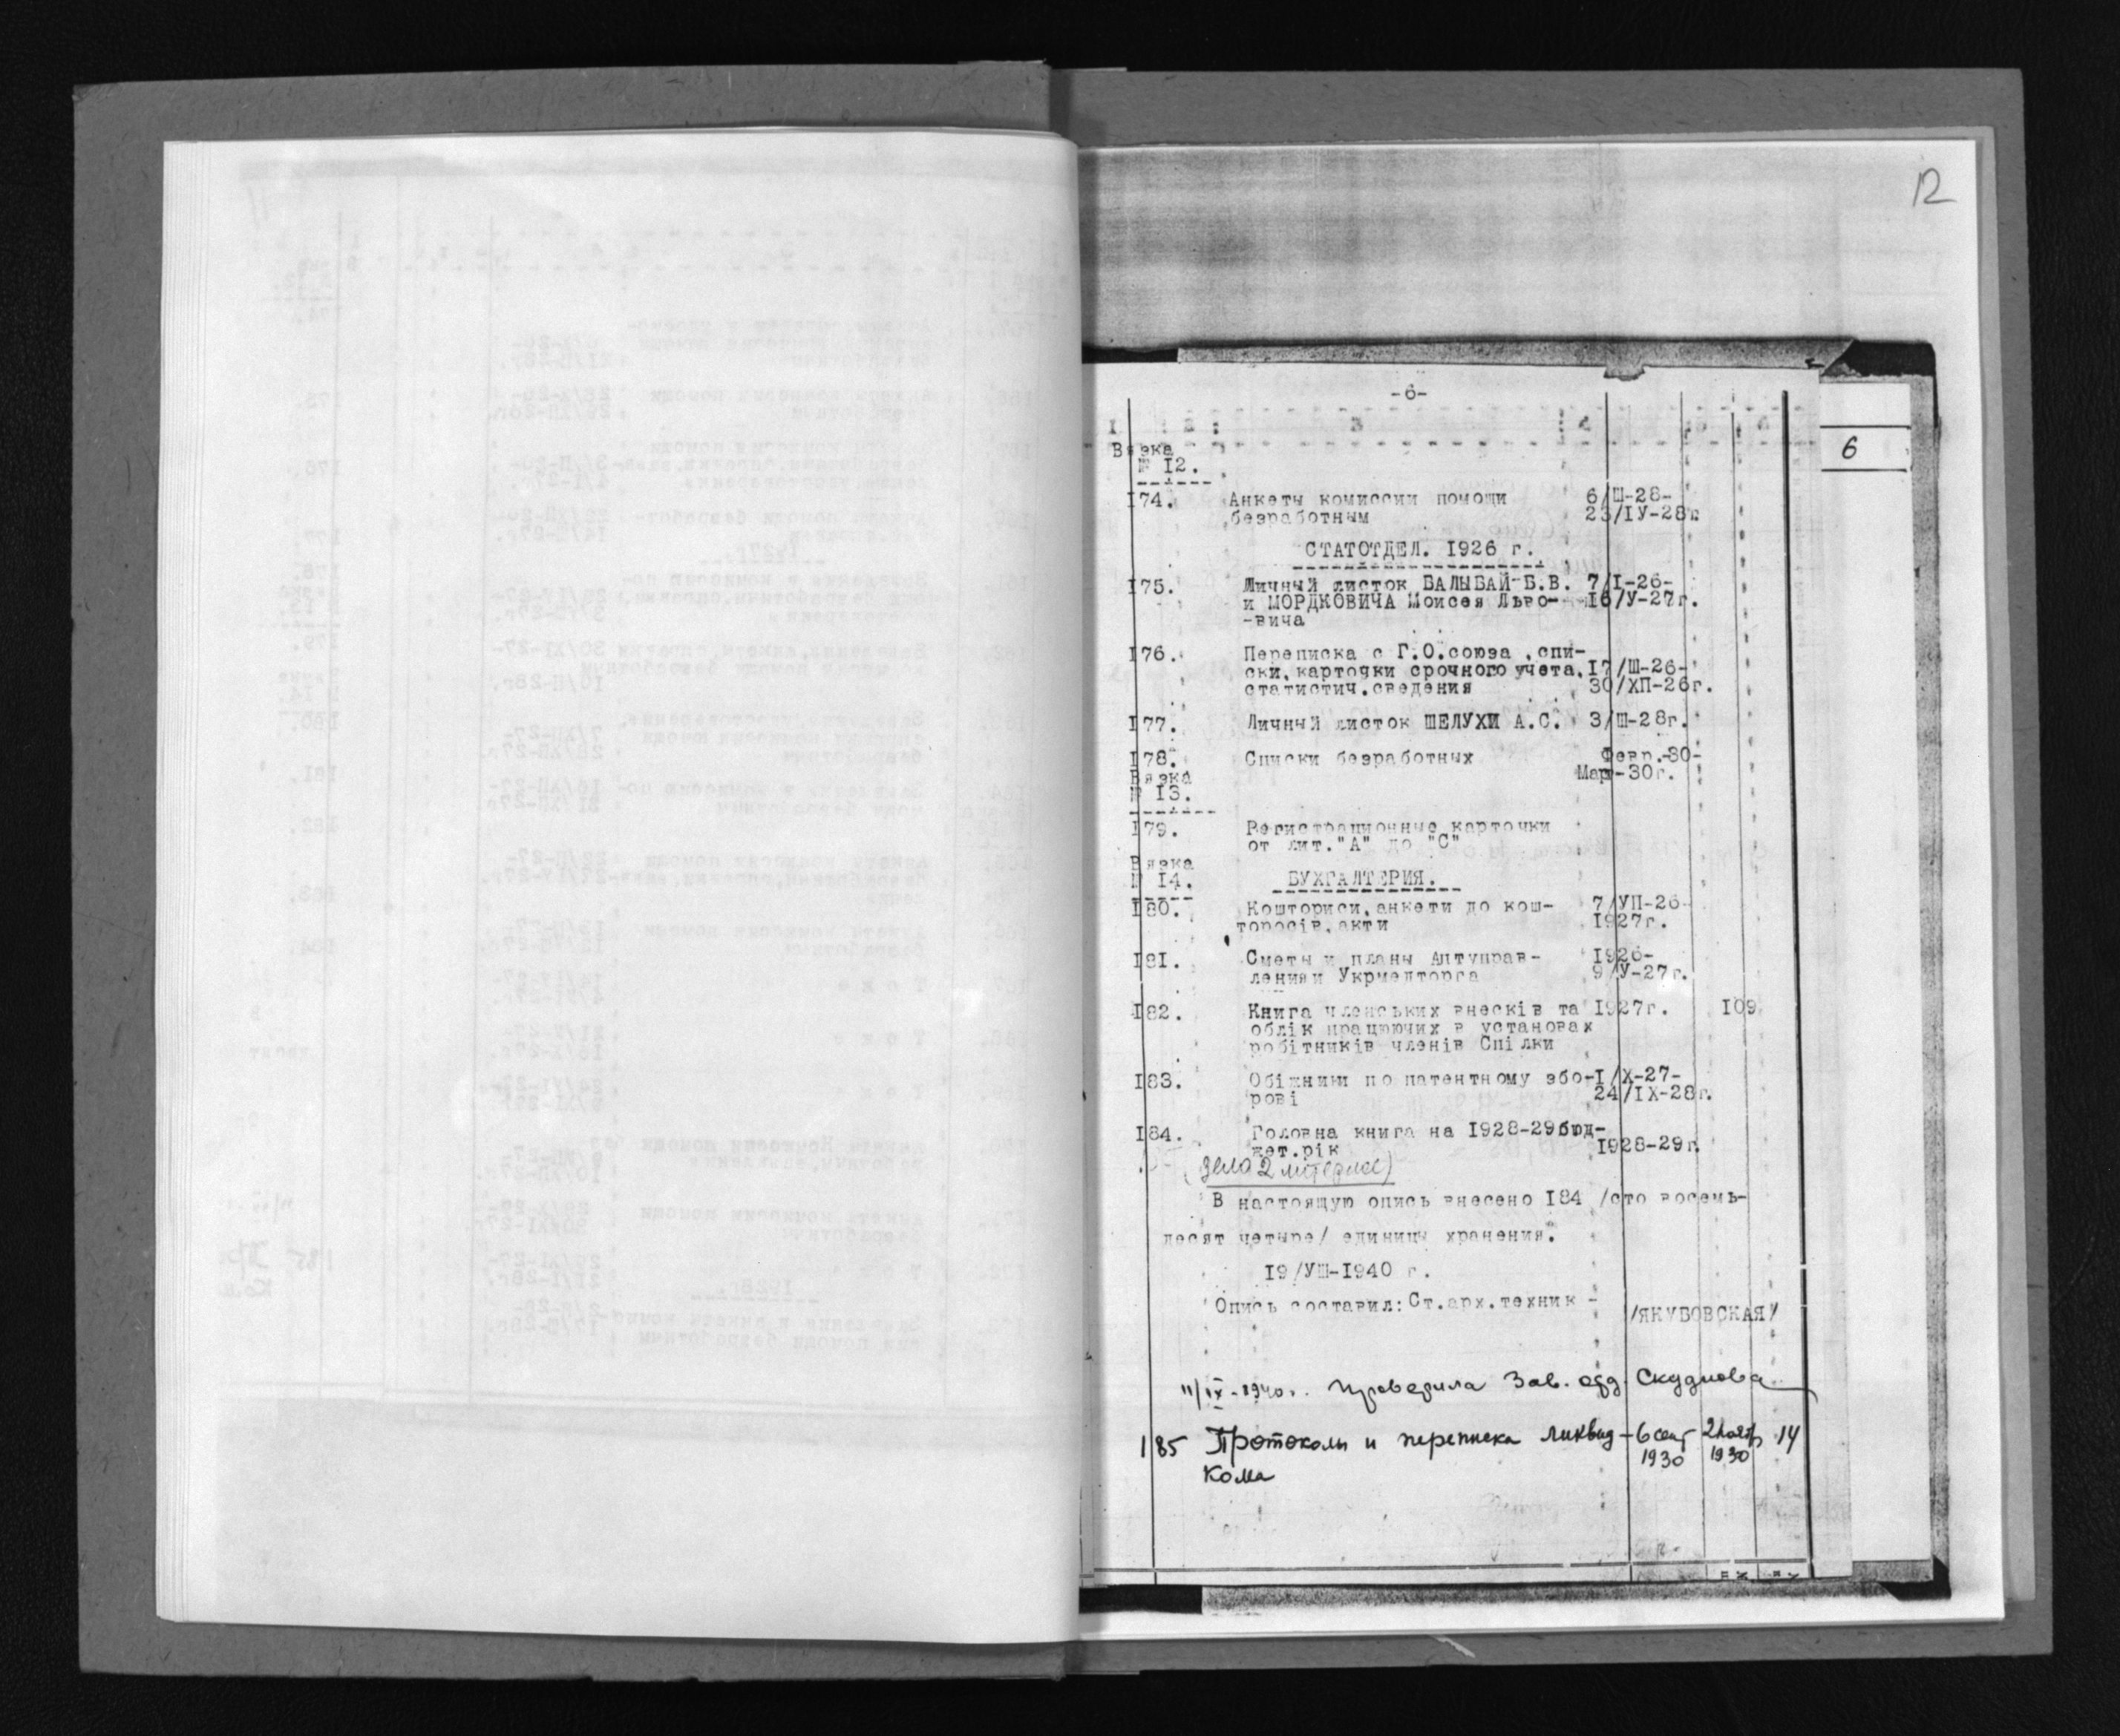 12
-6-
1 2 3 4 5 6
6
Вязка
№ 12.
174. Анкеты комиссии помощи 6/Ш-28-
безработным 23/IУ-28г.
СТАТОТДЕЛ. 1926 г.
175. Личный листок БАЛЫБАЙ Б.В. 7/I-26-
и МОРДКОВИЧА Моисея Льво- 16/У-27г.
-вича
176. Переписка с Г.О.союза ,спи-
ски,карточки срочного учета, 17/Ш-26-
статистич.сведения 30/ХП-26г.
177. Личный листок ШЕЛУХИ А.С. 3/Ш-28г.
178. Списки безработных Февр.-30-
Вязка Март-30г.
№ 13.
179. Регистрационные карточки
от лит."А" до "С"
Вязка
№ 14. БУХГАЛТЕРИЯ.
180. Кошториси,анкети до кош- 7/УП-26-
торосів,акти 1927г.
181. Сметы и планы Аптуправ- 1926-
ления и Укрмедторга 9/У-27г.
182. Книга членських внесків та 1927г. 109
облік працюючих в установах
робітників членів Спілки
183. Обіжники по патентному збо- I/Х-27-
рові 24/IХ-28г.
184. Головна книга на 1928-29бюд-
жет.рік 1928-29г.
(дело 2 литерное)
В настоящую опись внесено 184 /сто восемь-
десят четыре/ единицы хранения.
19/УШ-1940 г.
Опись составил: Ст.арх.техник -
/ЯКУБОВСКАЯ/
11/IX-1940г. Проверила Зав. отд. Скуднова
185 Протоколы и переписка ликвид- 6 сент 2 ноября 14
кома 1930 1930